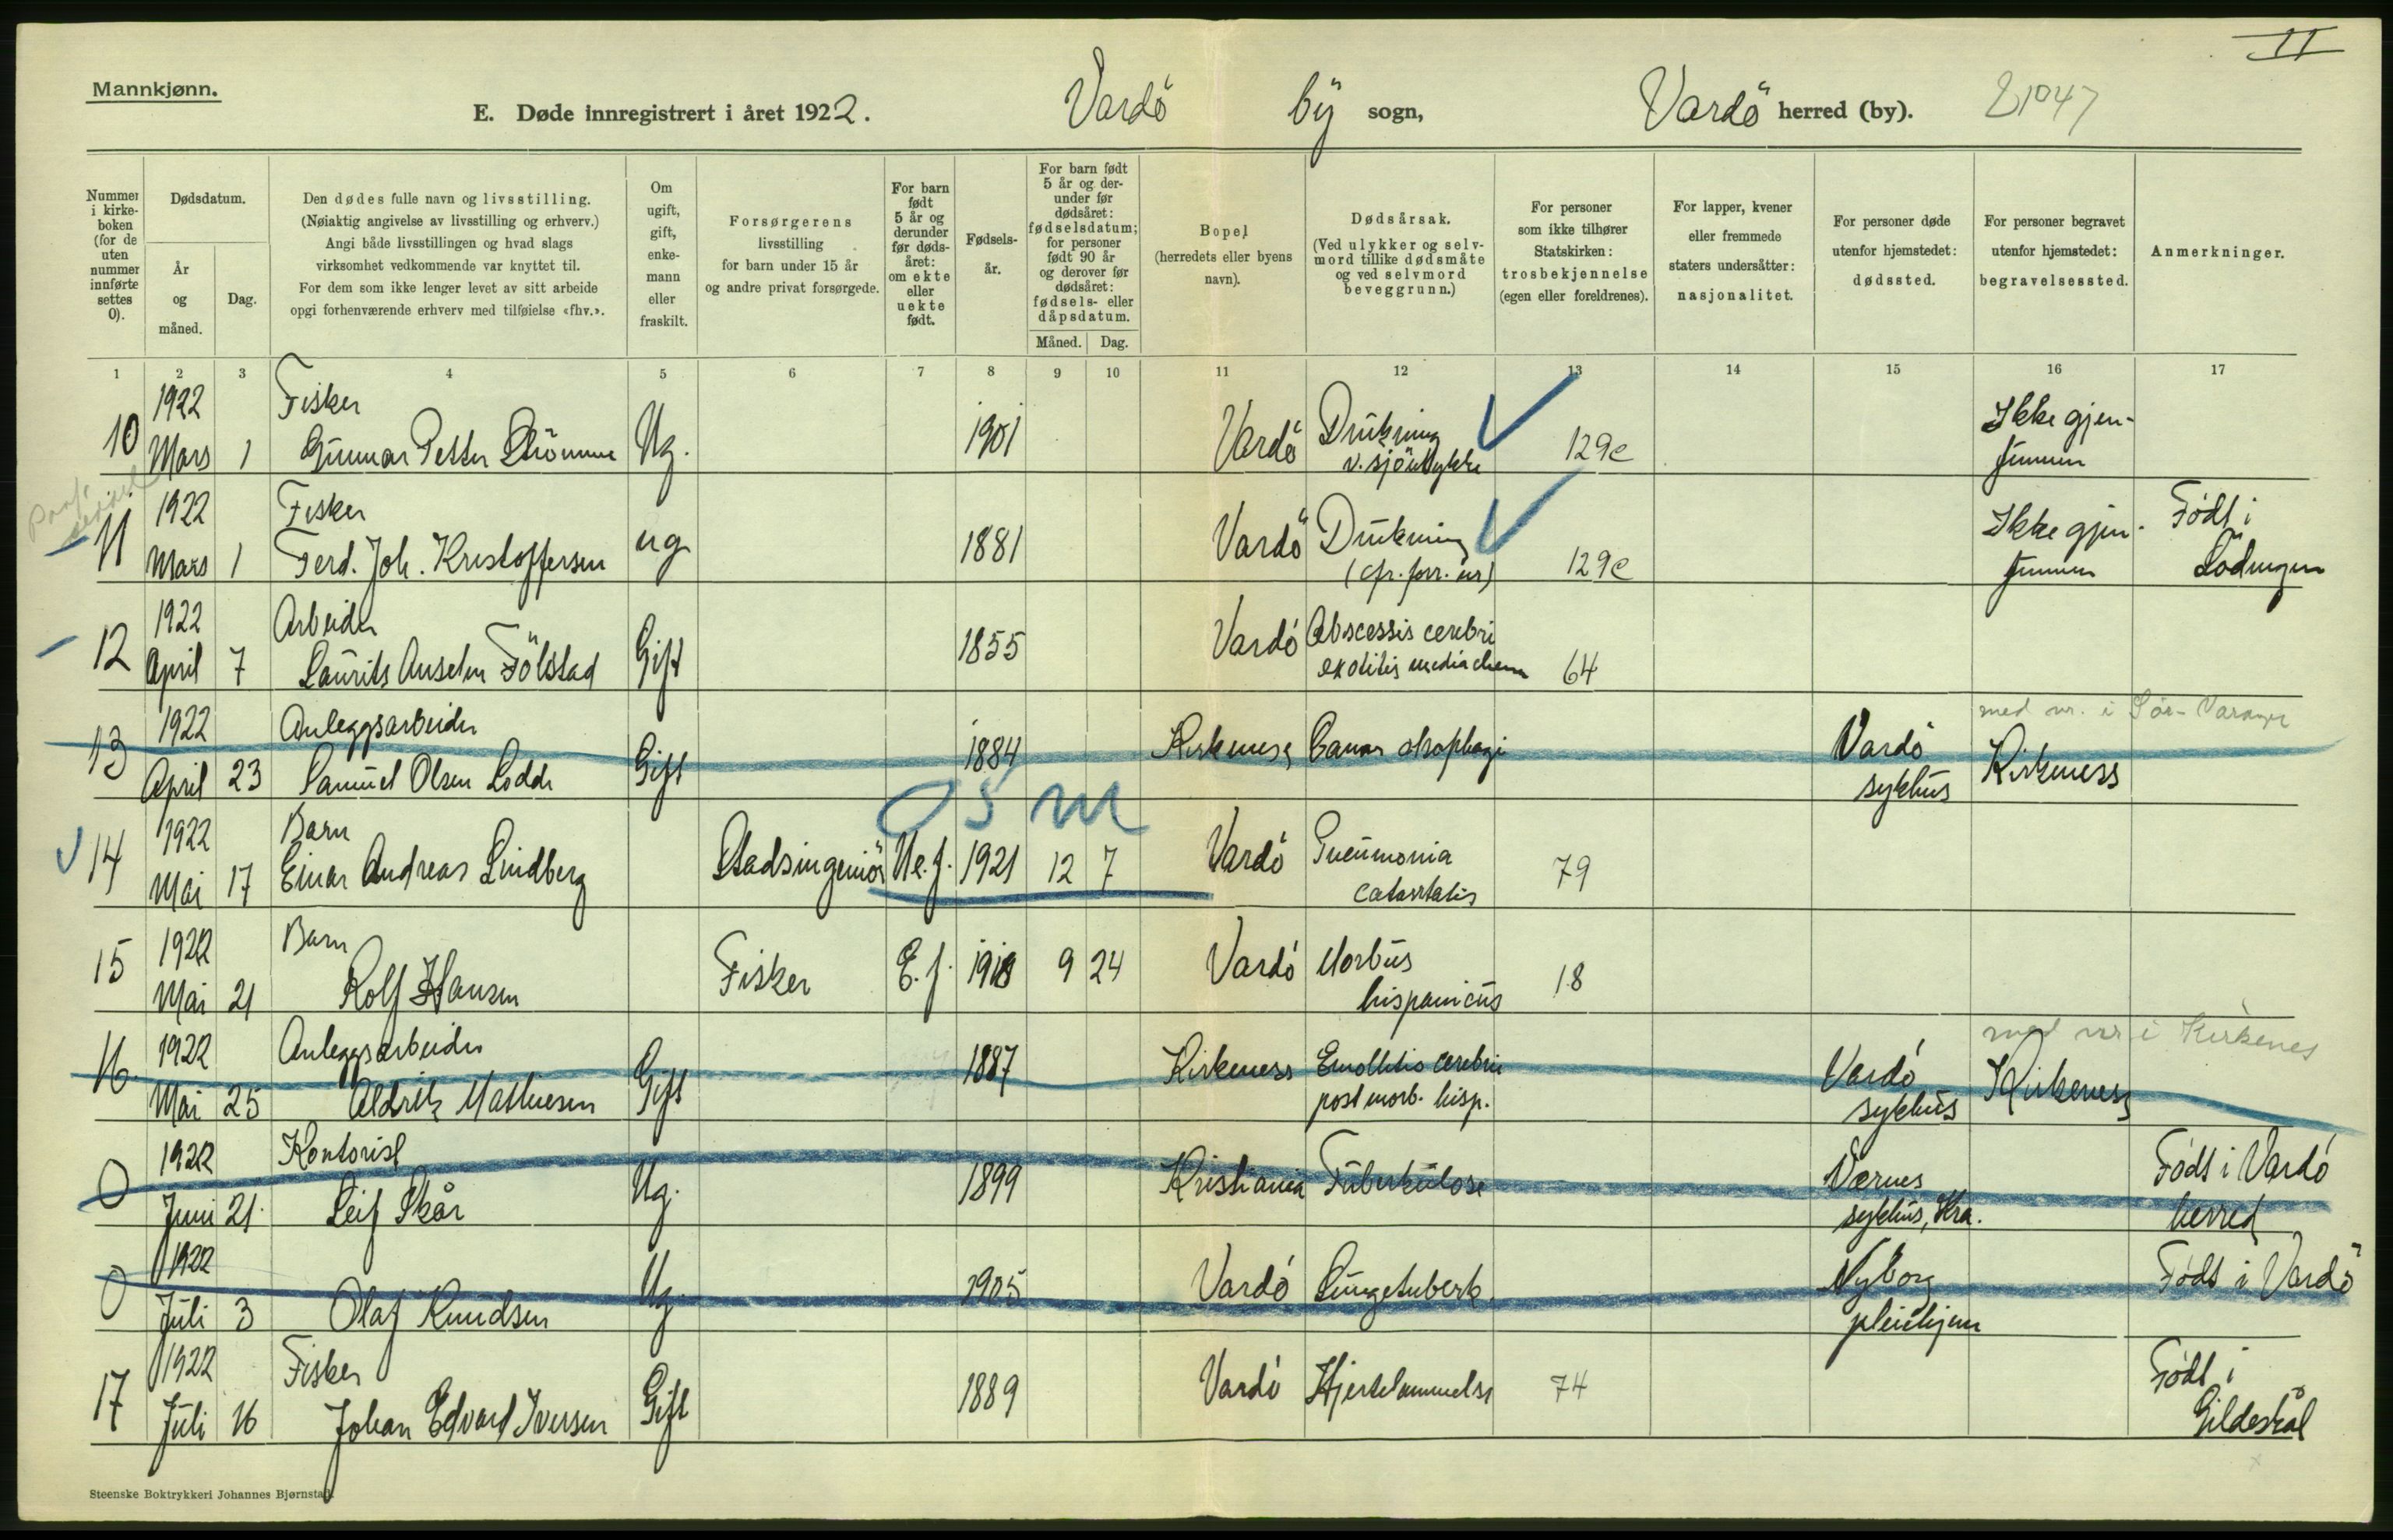 II
Mannkjønn.
E. Døde innregistrert i året 1922. Vardö by sogn, Vardö herred (by). 21047
Nummer i kirkeboken (for de uten nummer innførte settes 0).
Dødsdatum.
År og måned.
Dag.
Den dødes fulle navn og livsstilling.
(Nøiaktig angivelse av livsstilling og erhverv.)
Angi både livsstillingen og hvad slags
virksomhet vedkommende var knyttet til.
For dem som ikke lenger levet av sitt arbeide
opgi forhenværende erhverv med tilføielse «fhv.».
Om ugift, gift, enkemann eller fraskilt.
Forsørgerens livsstilling for barn under 15 år og andre privat forsørgede.
For barn født 5 år og derunder før dødsåret: om ekte eller uekte født.
Fødselsår.
For barn født 5 år og derunder før dødsåret: fødselsdatum; for personer født 90 år og derover før dødsåret: fødsels- eller dåpsdatum.
Måned. Dag.
Bopel (herredets eller byens navn).
Dødsårsak.
(Ved ulykker og selvmord tillike dødsmåte og ved selvmord beveggrunn.)
For personer som ikke tilhører Statskirken: trosbekjennelse (egen eller foreldrenes).
For lapper, kvener eller fremmede staters undersåtter: nasjonalitet.
For personer døde utenfor hjemstedet: dødssted.
For personer begravet utenfor hjemstedet: begravelsessted.
Anmerkninger.
1 2 3 4 5 6 7 8 9 10 11 12 13 14 15 16 17
1922 Fisker
10 Mars 1 Gunnar Petter Strömme Ug. 1901 Vardö Drukning 129c Ikke gjen-
v. sjöulykke funnen
1922 Fisker
11 Mars 1 Ferd. Joh. Kristoffersen ug 1881 Vardö Drukning 129c Ikke gjen- Född i
(cfr. forr. nr) funnen Lödingen
1922 Arbeider
12 April 7 Laurits Anselm Fölstad Gift 1855 Vardö Abscessis cerebri 64
ex otitis media chron
med nr. i Sör-Varanger
1922 Anleggsarbeider
13 April 23 Samuel Olsen Lodde Gift 1884 Kirkeness Cancer øsophagi Vardö Kirkeness
sykhus
OSM
1922 Barn
14 Mai 17 Einar Andreas Lindberg Stadsingeniör Ue.f. 1921 12 7 Vardö Pneumonia 79
catarrhalis
1922 Barn
15 Mai 21 Rolf Hansen Fisker E.f. 1918 9 24 Vardö Morbus 18
hispanicus
med nr i Kirkenes
1922 Anleggsarbeider
16 Mai 25 Aldritz Mathiesen Gift 1887 Kirkeness Emollitio cerebri Vardö Kirkeness
post morb. hisp. sykhus
1922 Kontorist
0 Juni 21. Leif Skår Ug. 1899 Kristiania Tuberkulose Værnes Födt i Vardö
sykhus, Kra. herred
1922
0 Juli 3 Olaf Knudsen Ug. 1905 Vardö Lungetuberk. Nyborg Födt i Vardö
pleiehjem
1922 Fisker
17 Juli 16 Johan Edvard Iversen Gift 1889 Vardö Hjertelammelse 74 Född i
Gildeskål
Steenske Boktrykkeri Johannes Bjørnstad.